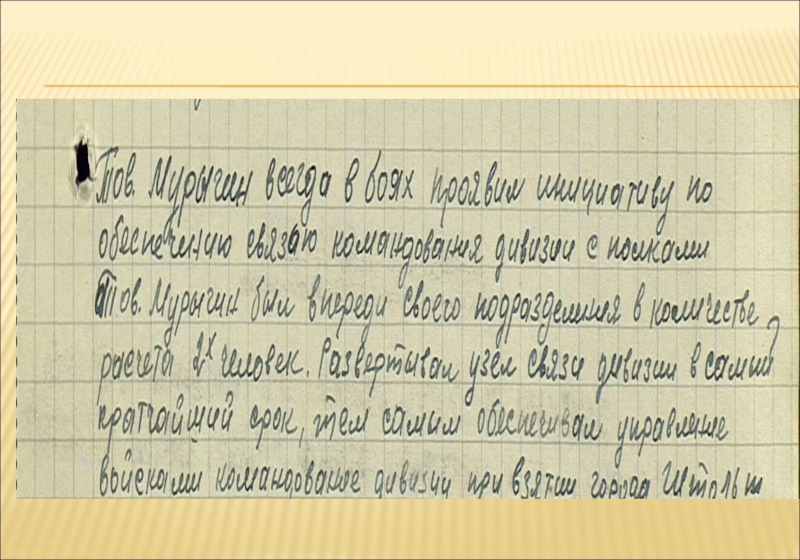 Тов. Мурыгин всегда в боях проявил инициативу по
обеспечению связью командования дивизии с полками
Тов. Мурыгин был впереди своего подразделения в количестве
расчета 2х человек. Развертывал узел связи дивизии в самый
кратчайший срок, тем самым обеспечивал управление
войсками командование дивизии при взятии города